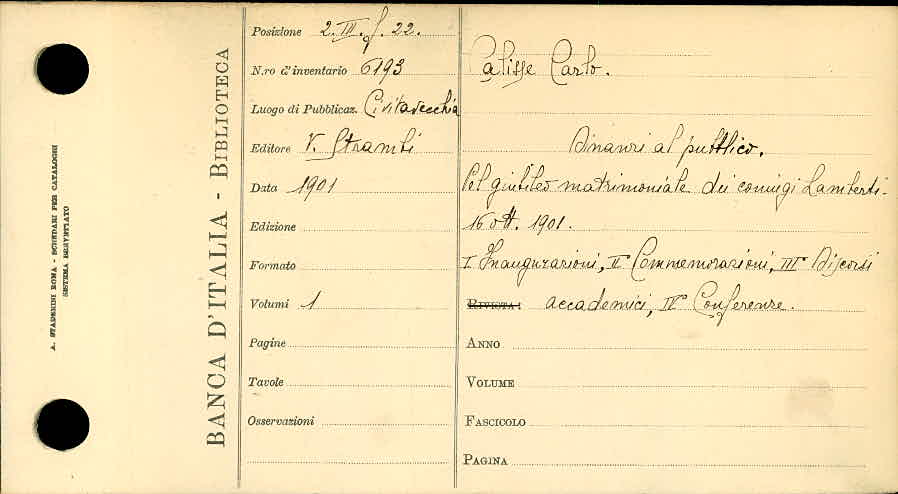 A. STADERINI ROMA - SCHEDARI PER CATALOGHI
SISTEMA BREVETTATO
BANCA D'ITALIA - BIBLIOTECA
Posizione 2. III. f. 22.
N.ro d'inventario 6193
Luogo di Pubblicaz. Civitavecchia
Editore V. Strambi
Data 1901
Edizione
Formato
Volumi 1
Pagine
Tavole
Osservazioni
Calisse Carlo.
Dinanzi al pubblico.
Pel giubileo matrimoniale dei coniugi Lamberti-
16 ott. 1901.
I Inaugurazioni, II Commemorazioni, III Discorsi
RIVISTA: accademici, IV Conferenze.
ANNO
VOLUME
FASCICOLO
PAGINA